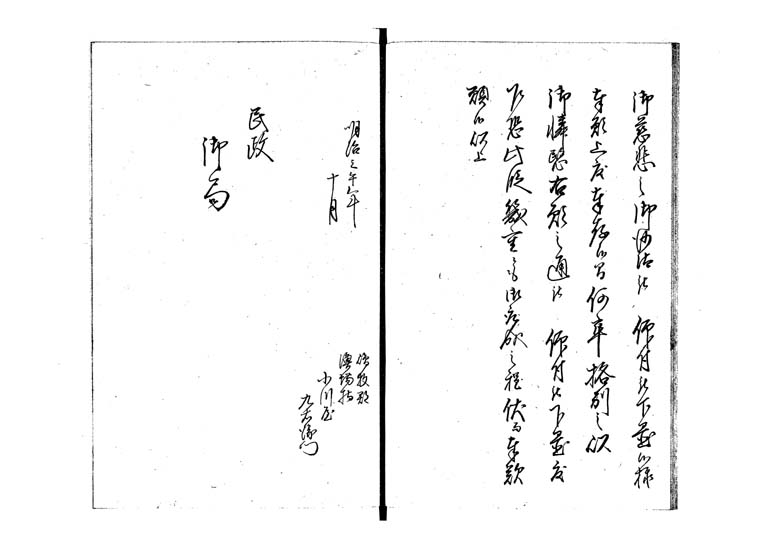 御慈悲之御沙汰被 仰付被下置候様
奉願上度奉存候間何卒格別之以
御憐愍右願之通被 仰付被下置度
乍恐此段幾重ニも御慈之程伏而奉歎
願候以上
明治三午年
十月
民政
御局
郡
小川屋
九右衛門